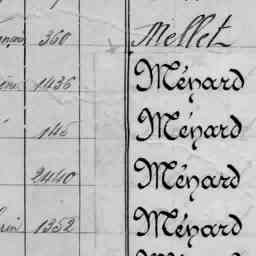 360 Mellet
1436 Ménard
145 Ménard
2440 Ménard
1352 Ménard